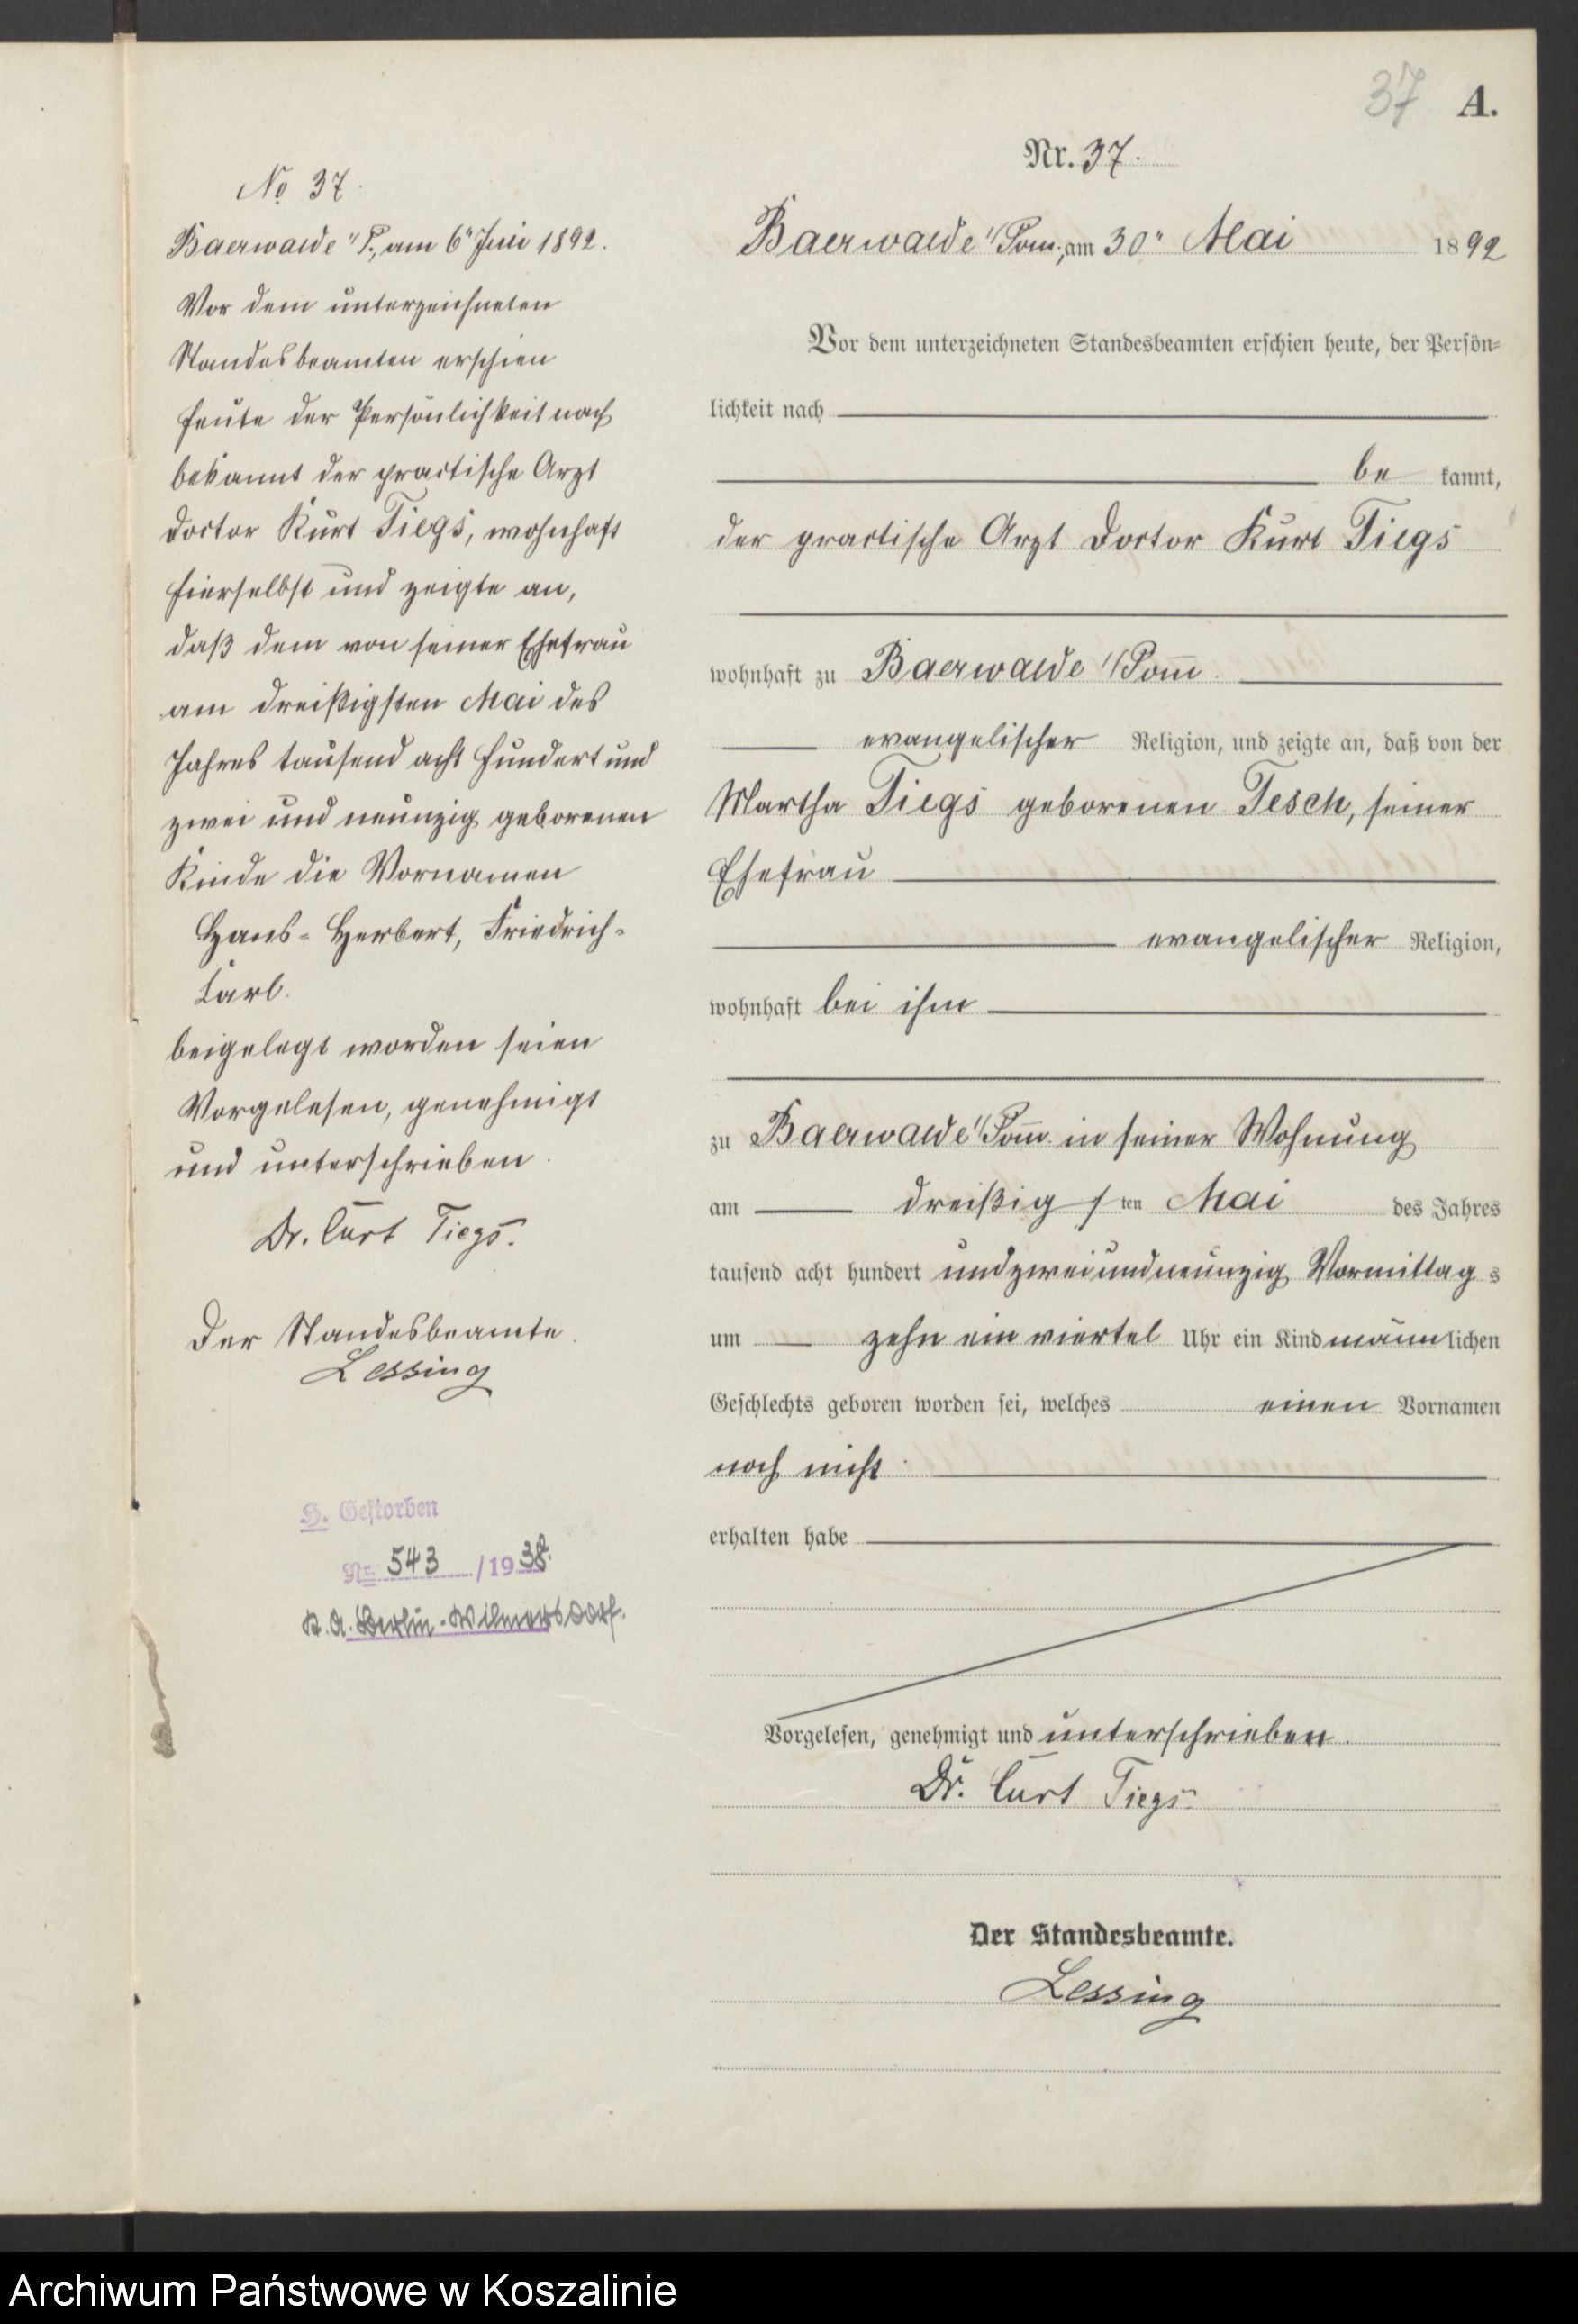 37 A.
Nr. 37.
Baerwalde i/Pom., am 30ten Mai 1892
Vor dem unterzeichneten Standesbeamten erschien heute, der Persön-
lichkeit nach
be kannt,
der practische Arzt Doctor Kurt Tiegs
wohnhaft zu Baerwalde i/Pom̄.
evangelischer Religion, und zeigte an, daß von der
Martha Tiegs geborenen Tesch, seiner
Ehefrau
evangelischer Religion,
wohnhaft bei ihm
zu Baerwalde i/Pom̄. in seiner Wohnung
am dreißigsten Mai des Jahres
tausend acht hundert und zwei und neunzig Vormittags
um zehn ein viertel Uhr ein Kind männlichen
Geschlechts geboren worden sei, welches einen Vornamen
noch nicht
erhalten habe
Vorgelesen, genehmigt und unterschrieben.
Dr. Curt Tiegs.
Der Standesbeamte.
Lessing
No 37.
Baerwalde i/P., am 6ten Juni 1892.
Vor dem unterzeichneten
Standesbeamten erschien
heute der Persönlichkeit nach
bekannt der practische Arzt
Doctor Kurt Tiegs, wohnhaft
hierselbst und zeigte an,
daß dem von seiner Ehefrau
am dreißigsten Mai des
Jahres tausend acht hundert und
zwei und neunzig geborenen
Kinde die Vornamen
Hans-Herbert, Friedrich-
Carl.
beigelegt worden seien
Vorgelesen, genehmigt
und unterschrieben.
Dr. Curt Tiegs.
Der Standesbeamte.
Lessing
H. Gestorben
Nr. 543 /1938.
St. A. Berlin-Wilmersdorf.
Archiwum Państwowe w Koszalinie